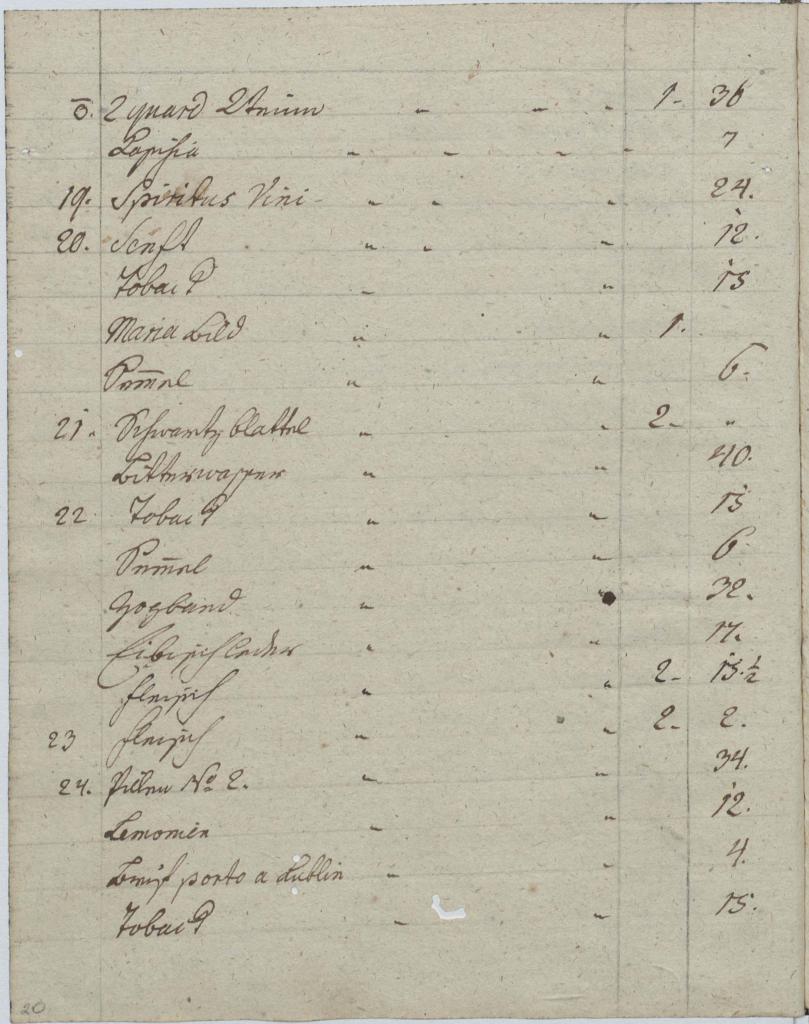 2 quard 1- 36
7
19. Spiritus Vini - 24.
20. Senft 12.
Toback 15
Maria Bild 1.
Semel 6.
21. Schwartzblattel 2. "
Bitterwasser 40.
22 Toback 15
Semel 6
Hozband 32.
Eibischleder 17.
fleisch 2- 15.½
23 fleisch 2- 2.
24. Pillen No 2. 34.
Lemonien 12.
Brief porto a Lublin 4.
Toback 15.
20